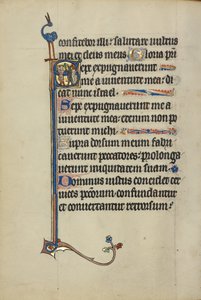 confitebor illi: salutare uultus
mei et deus meus. Gloria pri
Sepe expugnauerunt
me a iuuentute mea: di
cat nunc israel.
Sepe expugnauerunt me a
iuuentute mea: etenim non po
tuerunt michi.
Supra dorsum meum fabri
cauerunt peccatores: prolonga
uerunt iniquitatem suam.
Dominus iustus concidet cer
uices peccatorum: confundantur
et conuertantur retrorsum: